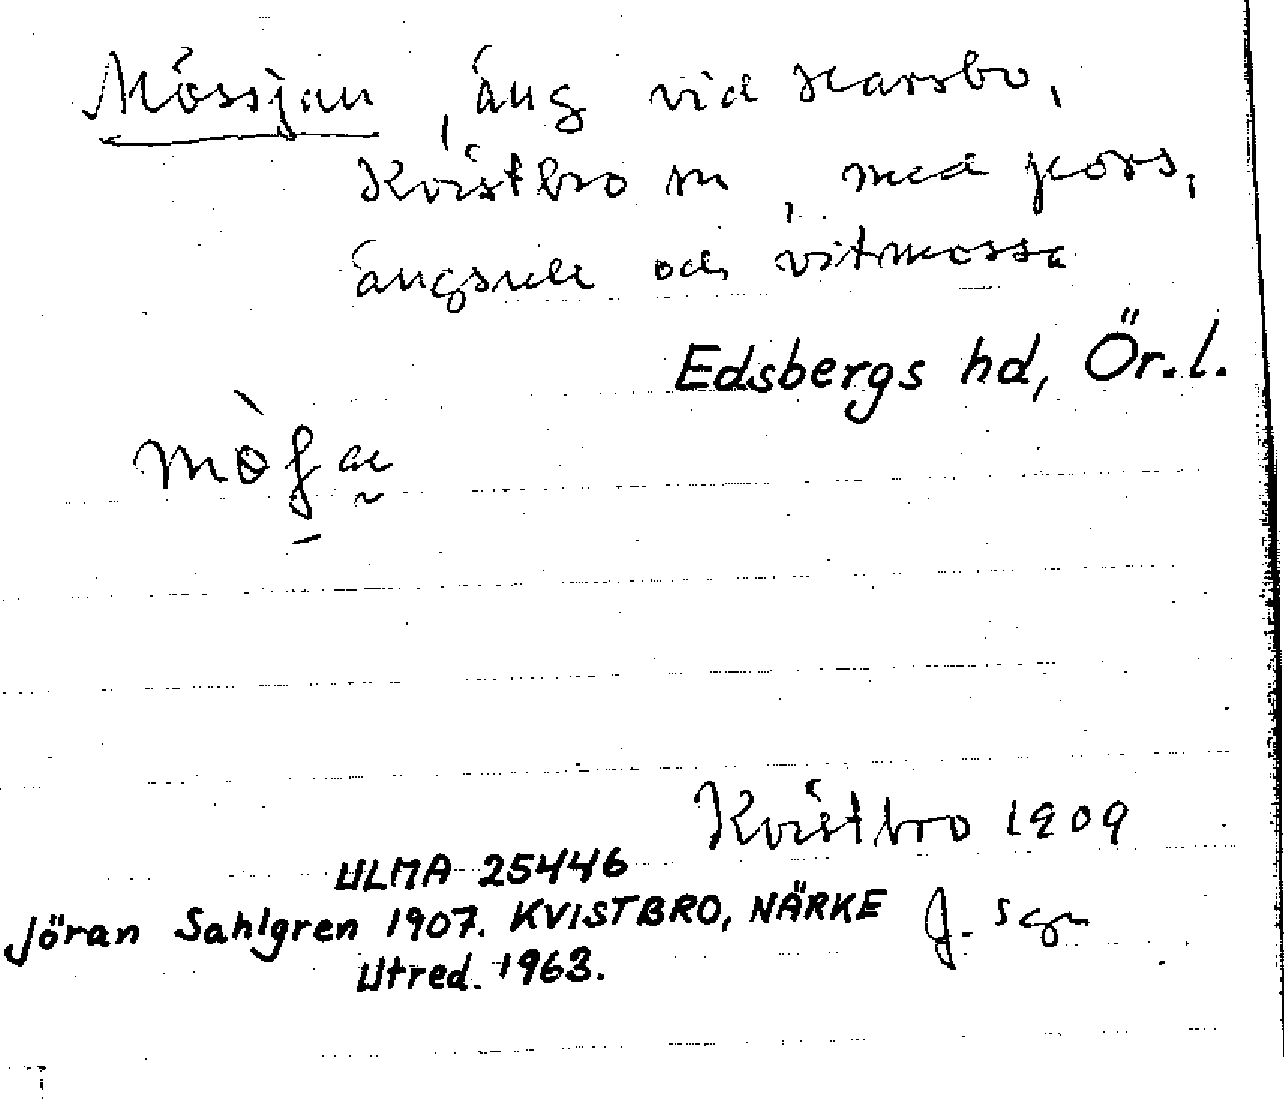 Mössjan, äng vid Skarsbo,
Kvistbro sn, med pors,
ängsull och vitmossa
Edsbergs hd, Ör.l.
Kvistbro 1909
ULMA 25446
Jöran Sahlgren 1907. KVISTBRO, NÄRKE J. Sgn
Utred. 1963.